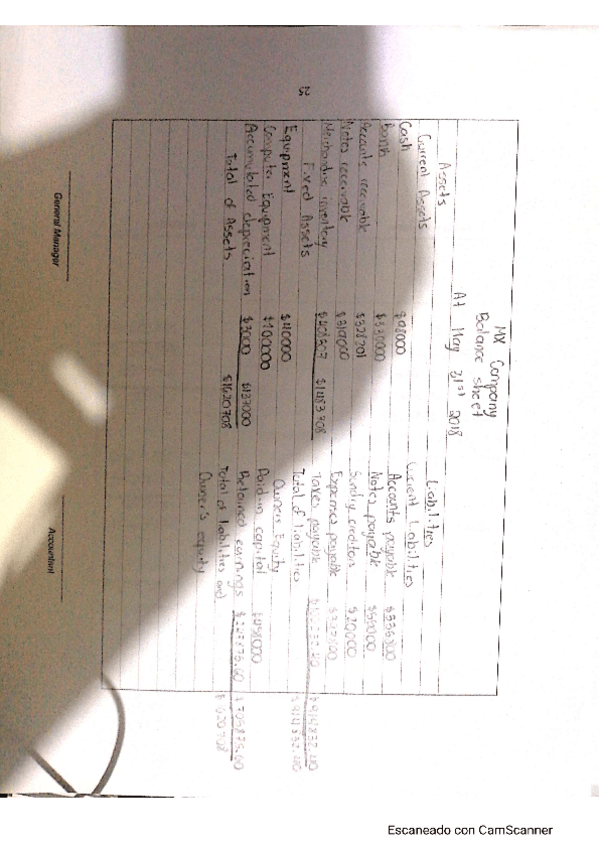 MX Company
Balance sheet
At May 31st 2018
Assets
Current Assets
Cash $98000
Bank $330000
Accounts receivable $328701
Notes receivable $319000
Merchandise inventory $1483708
Fixed Assets
Equipment $40000
Computer Equipment $100000
Accumulated depreciation $3000 $137000
Total of Assets $1620708
Liabilities
Current Liabilities
Accounts payable
Notes payable
Sundry creditors
Expenses payable
Taxes payable
Total of liabilities $914832.40
Owners Equity
Paid in capital $458000
Retained earnings $705875.60
Total of liabilities and
Owner's equity
25
General Manager
Accountant
Escaneado con CamScanner